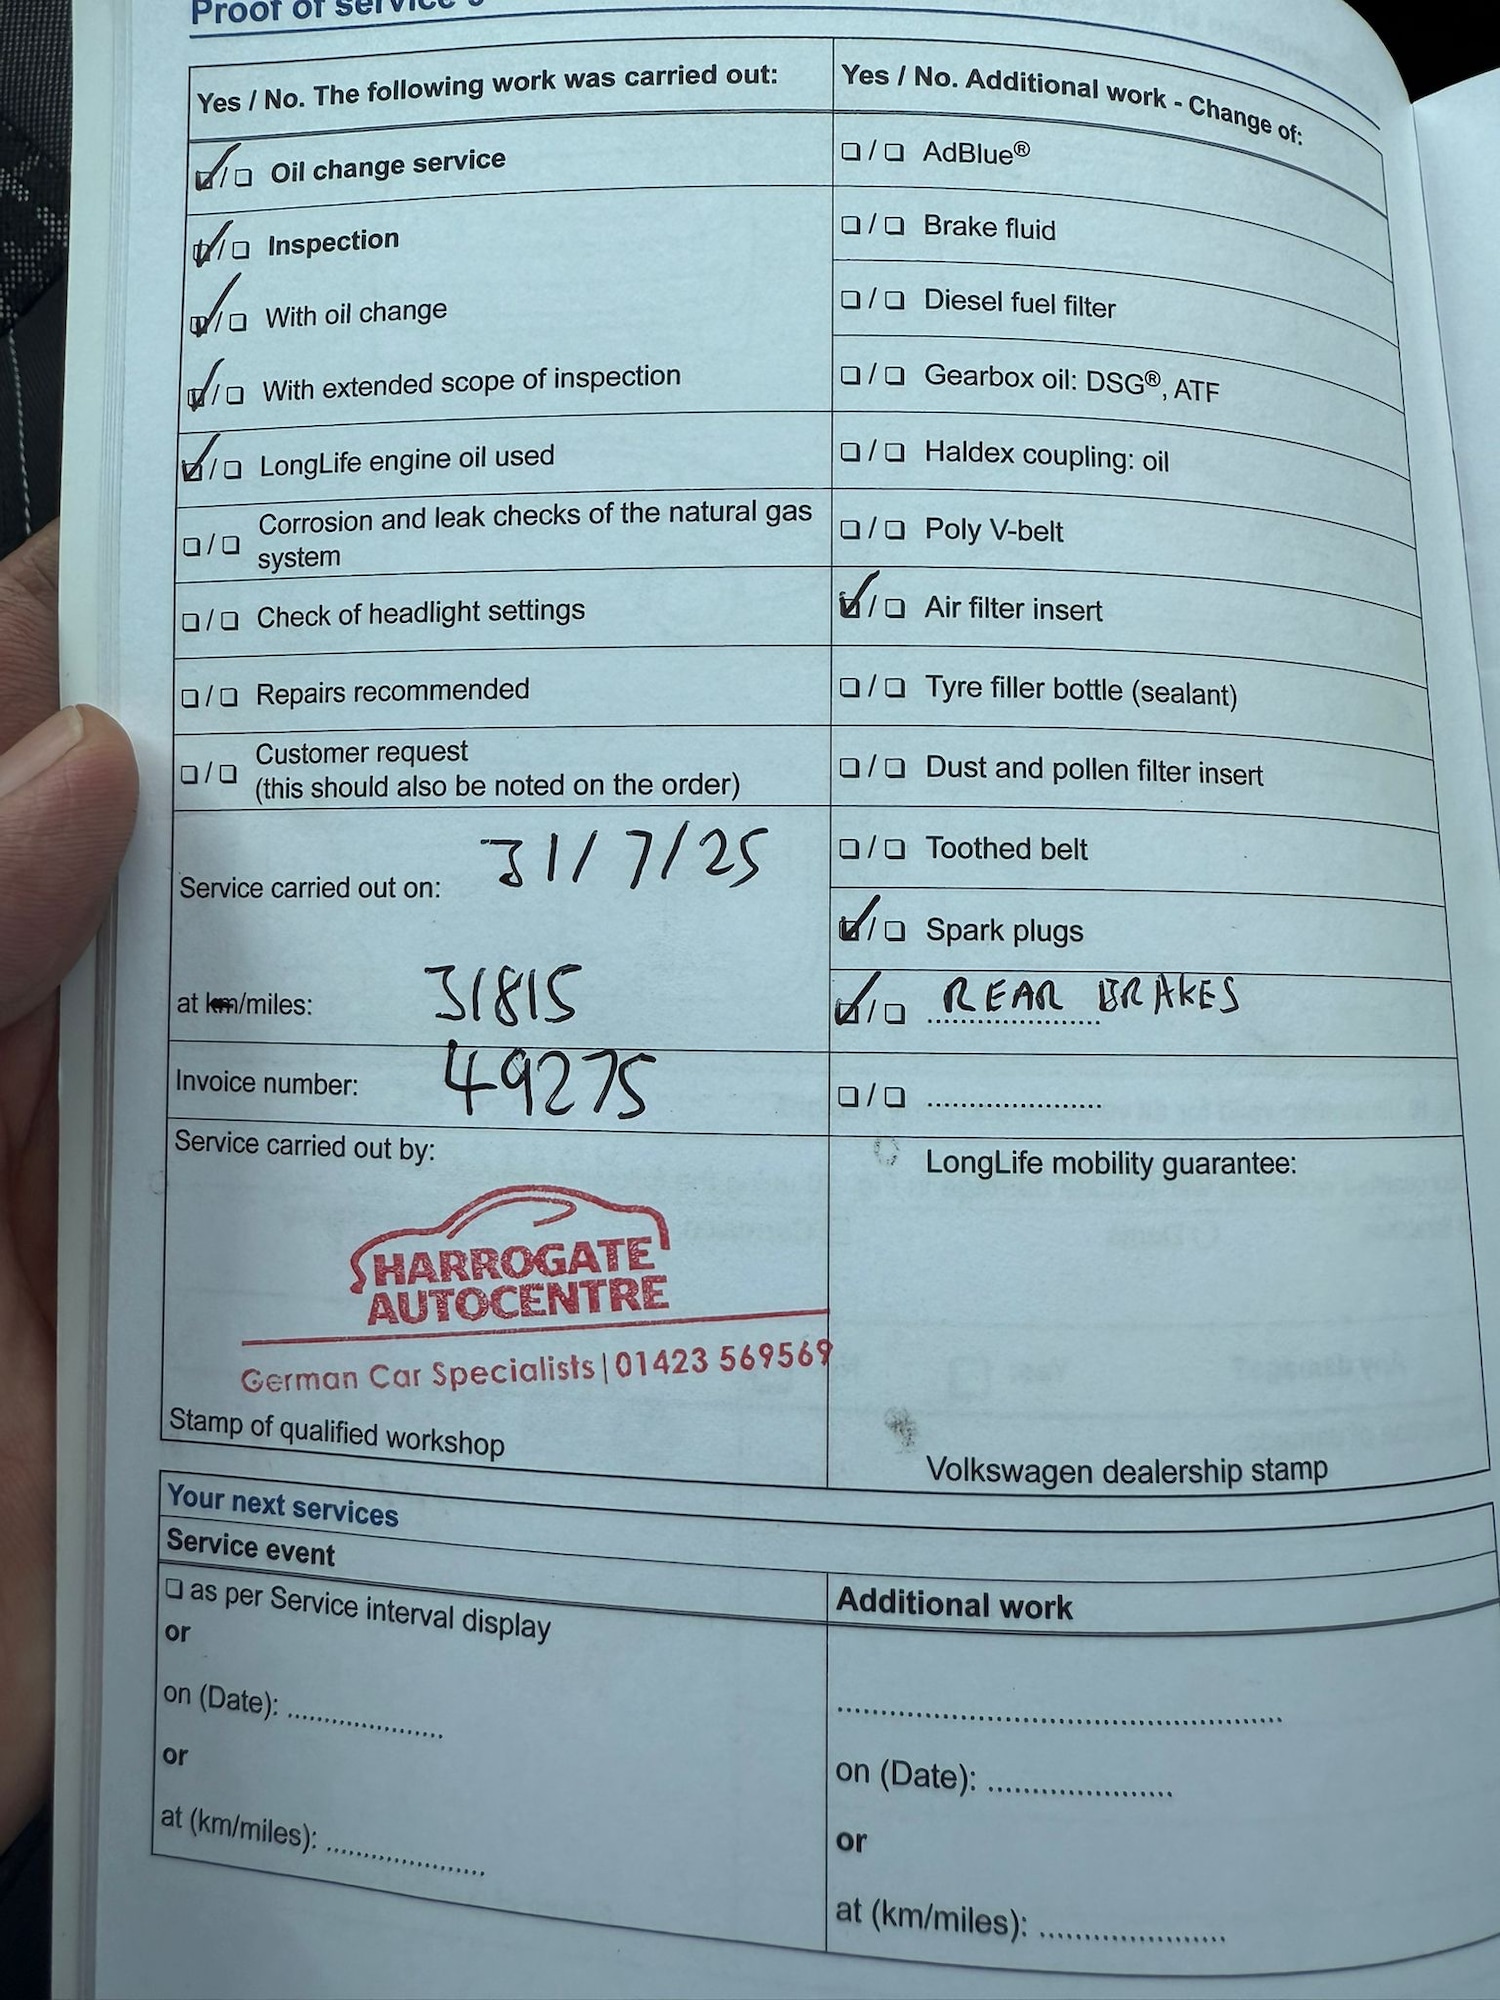 Proof of service
Yes / No. The following work was carried out:
❑ / ❑ Oil change service
❑ / ❑ Inspection
❑ / ❑ With oil change
❑ / ❑ With extended scope of inspection
❑ / ❑ LongLife engine oil used
❑ / ❑ Corrosion and leak checks of the natural gas
system
❑ / ❑ Check of headlight settings
❑ / ❑ Repairs recommended
❑ / ❑ Customer request
(this should also be noted on the order)
Service carried out on: 31/7/25
at km/miles: 31815
Invoice number: 49275
Service carried out by:
HARROGATE
AUTOCENTRE
German Car Specialists | 01423 569569
Stamp of qualified workshop
Yes / No. Additional work - Change of:
❑ / ❑ AdBlue®
❑ / ❑ Brake fluid
❑ / ❑ Diesel fuel filter
❑ / ❑ Gearbox oil: DSG®, ATF
❑ / ❑ Haldex coupling: oil
❑ / ❑ Poly V-belt
❑ / ❑ Air filter insert
❑ / ❑ Tyre filler bottle (sealant)
❑ / ❑ Dust and pollen filter insert
❑ / ❑ Toothed belt
❑ / ❑ Spark plugs
❑ / ❑ REAR BRAKES
❑ / ❑ ........................
LongLife mobility guarantee:
Volkswagen dealership stamp
Your next services
Service event
❑ as per Service interval display
or
on (Date): ......................
or
at (km/miles): ......................
Additional work
..........................................................
on (Date): ........................
or
at (km/miles): ........................